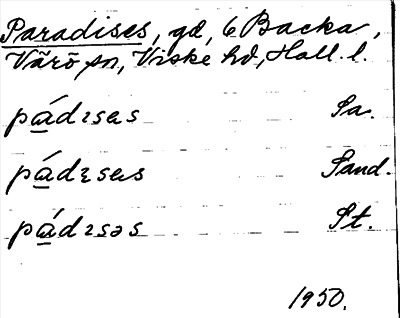 Paradises, gd, 6 Backa,
Värö sn, Viske hd, Hall. l.
pádɪsɐs Sa.
pádɪ̨sɐs Sand.
pádɪsəs St.
1950.